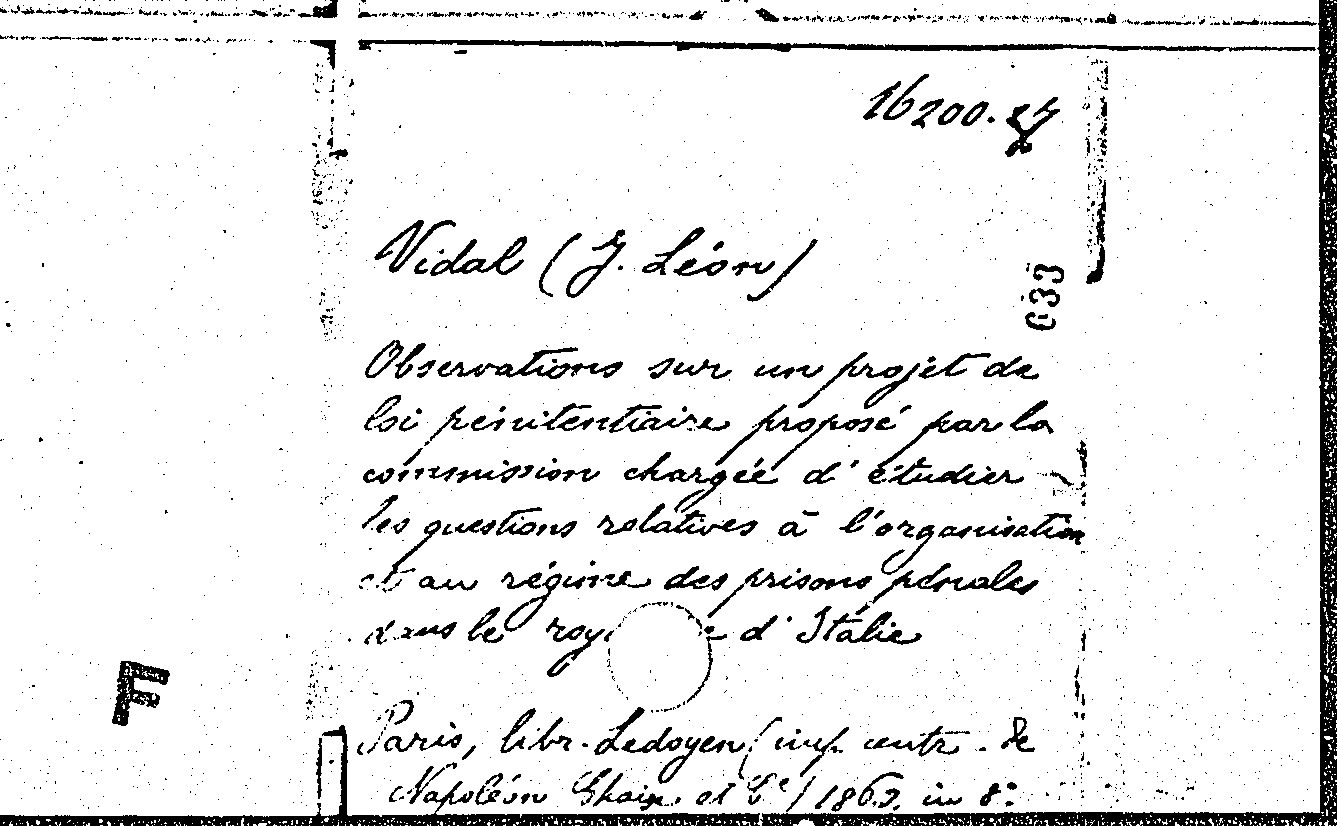 16200.
Vidal (J. Léon)
633
Observations sur un projet de
loi pénitentiaire proposé par la
commission chargée d'étudier
les questions relatives à l'organisation
et au régime des prisons pénales
dans le d'Italie
F
Paris, libr. Ledoyen (imp. centr. de
Napoléon Chaix et Cie) in 8°